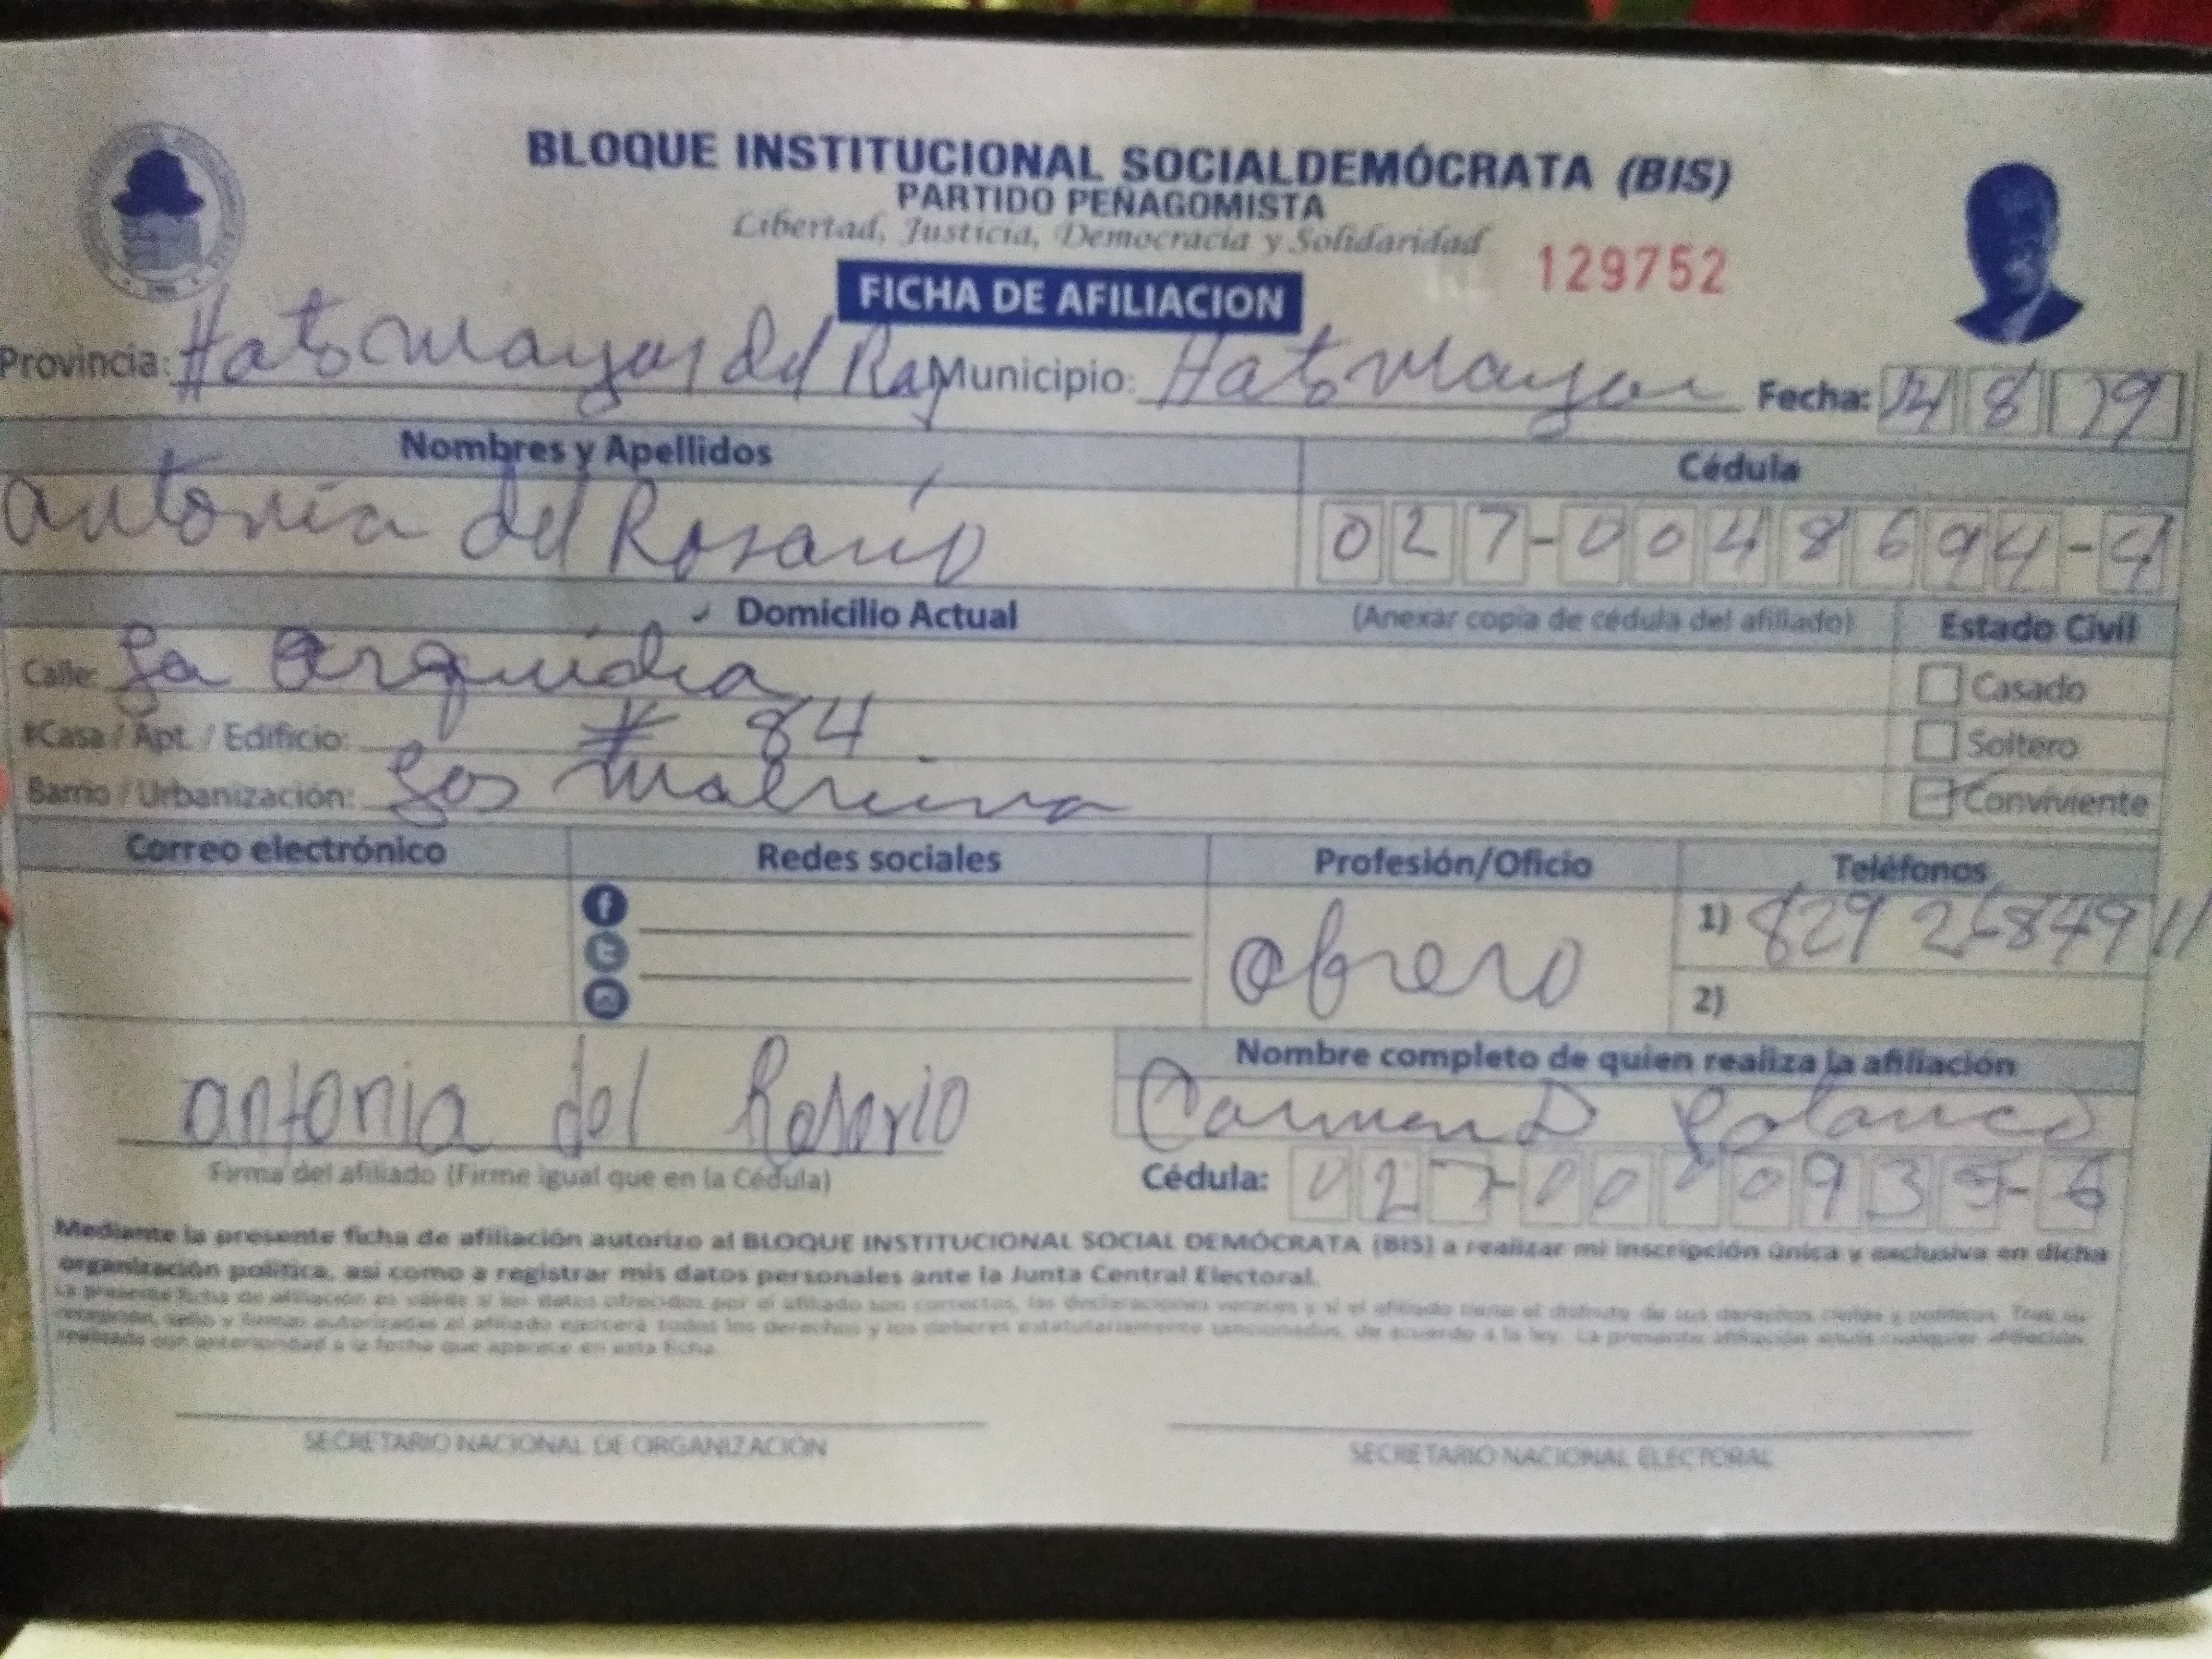 BLOQUE INSTITUCIONAL SOCIALDEMÓCRATA (BIS)
PARTIDO PEÑAGOMISTA
Libertad, Justicia, Democracia y Solidaridad
129752
FICHA DE AFILIACION
Provincia: Hato Mayor del Rey Municipio: Hato Mayor Fecha: 14 8 19
Nombres y Apellidos Cédula
Antonia del Rosario 027-0048694-4
Domicilio Actual (Anexar copia de cédula del afiliado) Estado Civil
Calle: La Orquidia Casado
#Casa / Apt. / Edificio: # 84 Soltero
Barrio / Urbanización: Las Malvina Conviviente
Correo electrónico Redes sociales Profesión/Oficio Teléfonos
Obrero 1) 829
2)
Nombre completo de quien realiza la afiliación
antonia del Rosario Carmen D Polanco
Firma del afiliado (Firme igual que en la Cédula) Cédula: 027-0000935-6
Mediante la presente ficha de afiliación autorizo al BLOQUE INSTITUCIONAL SOCIAL DEMÓCRATA (BIS) a realizar mi inscripción única y exclusiva en dicha
organización política, asi como a registrar mis datos personales ante la Junta Central Electoral.
La presente ficha de afiliación es válida si los datos ofrecidos por el afiliado son correctos, las declaraciones veraces y si el afiliado tiene el disfrute de sus derechos civiles y políticos. Tras su
recepción, sello y firmas autorizadas el afiliado ejercerá todos los derechos y los deberes estatutariamente sancionados, de acuerdo a la ley. La presente afiliación anula cualquier afiliación
realizada con anterioridad a la fecha que aparece en esta ficha.
SECRETARIO NACIONAL DE ORGANIZACIÓN SECRETARIO NACIONAL ELECTORAL